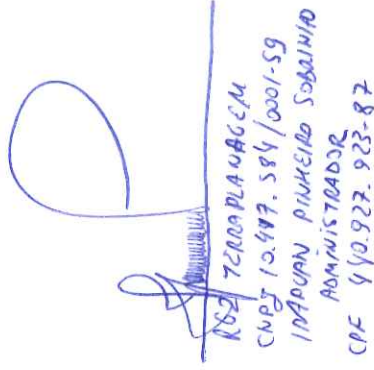 RGZ TERRAPLANAGEM
CNPJ 10.447.584/0001-59
IRAPUAN PINHEIRO SOBRINHO
ADMINISTRADOR
CPF 440.927.923-87